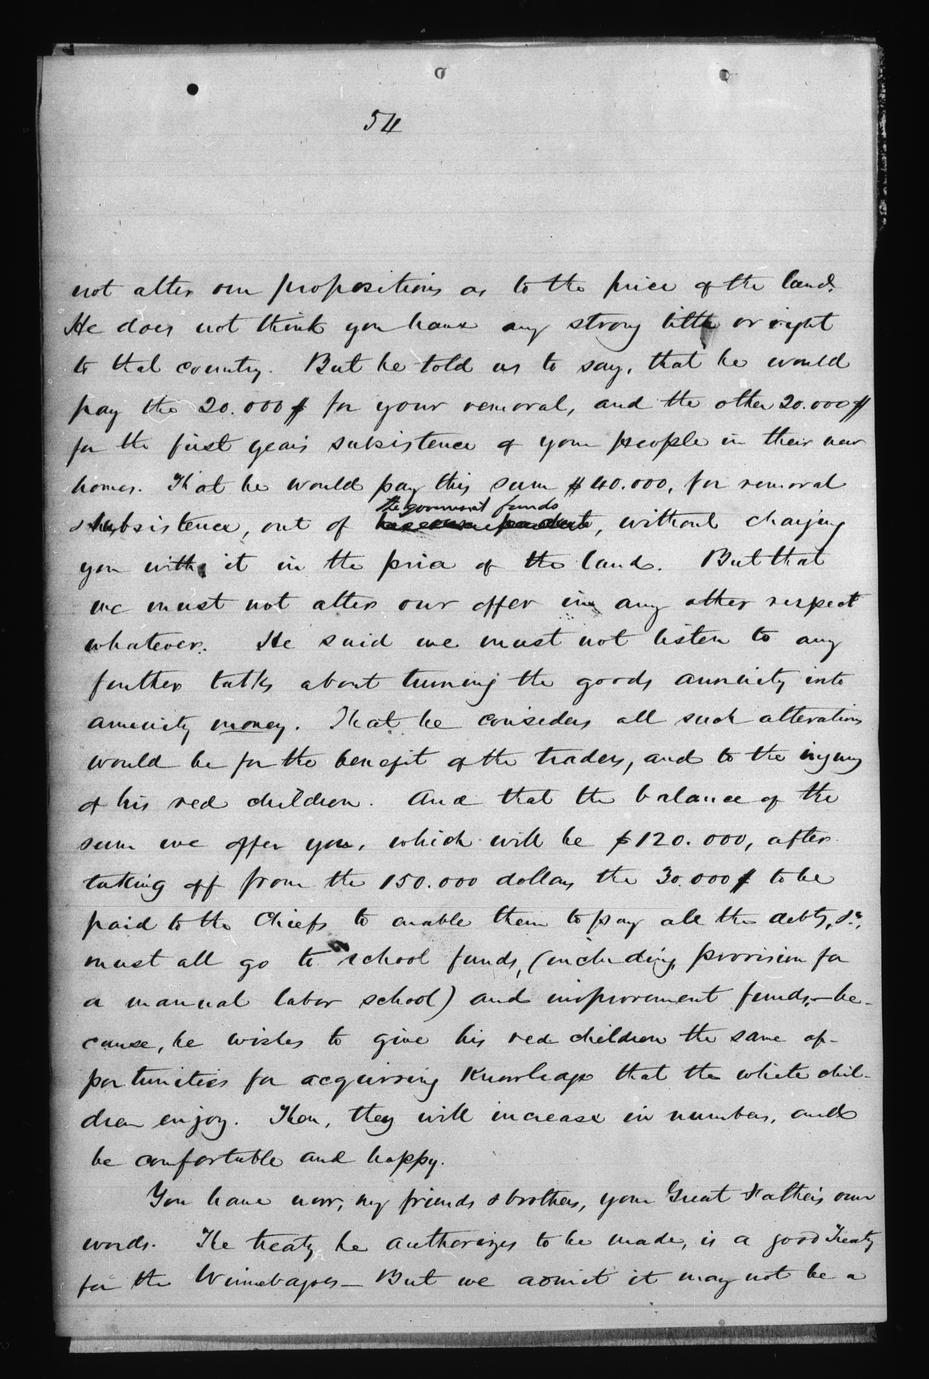 54
not alter our propositions as to the price of the land.
He does not think you have any strong title or right
to that country. But he told us to say, that he would
pay the 20.000$ for your removal, and the other 20.000$
for the first years subsistence of your people in their new
homes. That he would pay this sum $40.000, for removal
& subsistence, out of the government funds, without charging
you with it in the price of the land. But that
we must not alter our offer in any other respect
whatever. He said we must not listen to any
further talks about turning the goods annuity into
annuity money. That he considers all such alterations
would be for the benefit of the traders, and to the injury
of his red children. And that the balance of the
sum we offer you, which will be $120.000, after
taking off from the 150.000 dollars the 30.000$ to be
paid to the Chiefs to enable them to pay all the debts, &c,
must all go to school funds, (including provision for
a manual labor school) and improvement funds,—be-
cause, he wishes to give his red children the same op-
portunities for acquiring Knowledge that the white chil-
dren enjoy. Then, they will increase in numbers, and
be comfortable and happy.
You have now, my friends & brothers, your Great Father's own
words. The treaty he authorizes to be made, is a good Treaty
for the Winnebagoes— But we admit it may not be a